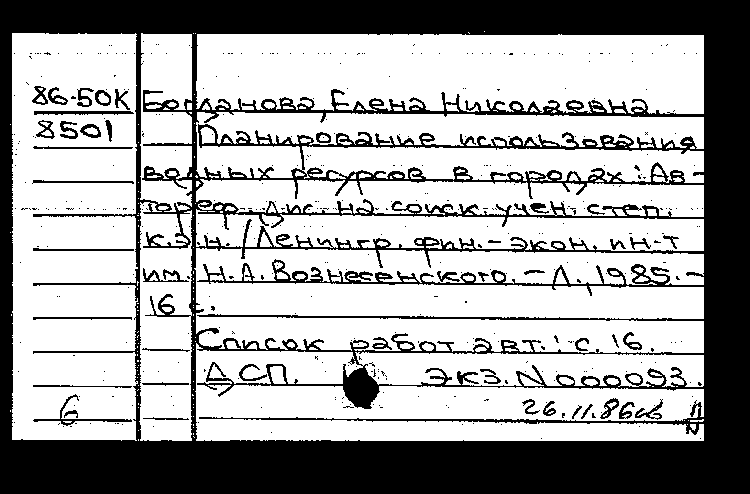 86-50К Богданова, Елена Николаевна.
8501 Планирование использования
водных ресурсов в городах: Ав-
тореф. дис. на соиск. учен. степ.
к.э.н. / Ленингр. фин.-экон. ин-т
им. Н.А. Вознесенского. – Л., 1985. –
16 с.
Список работ авт.: с. 16.
ДСП. Экз. N 000093.
6 26.11.86